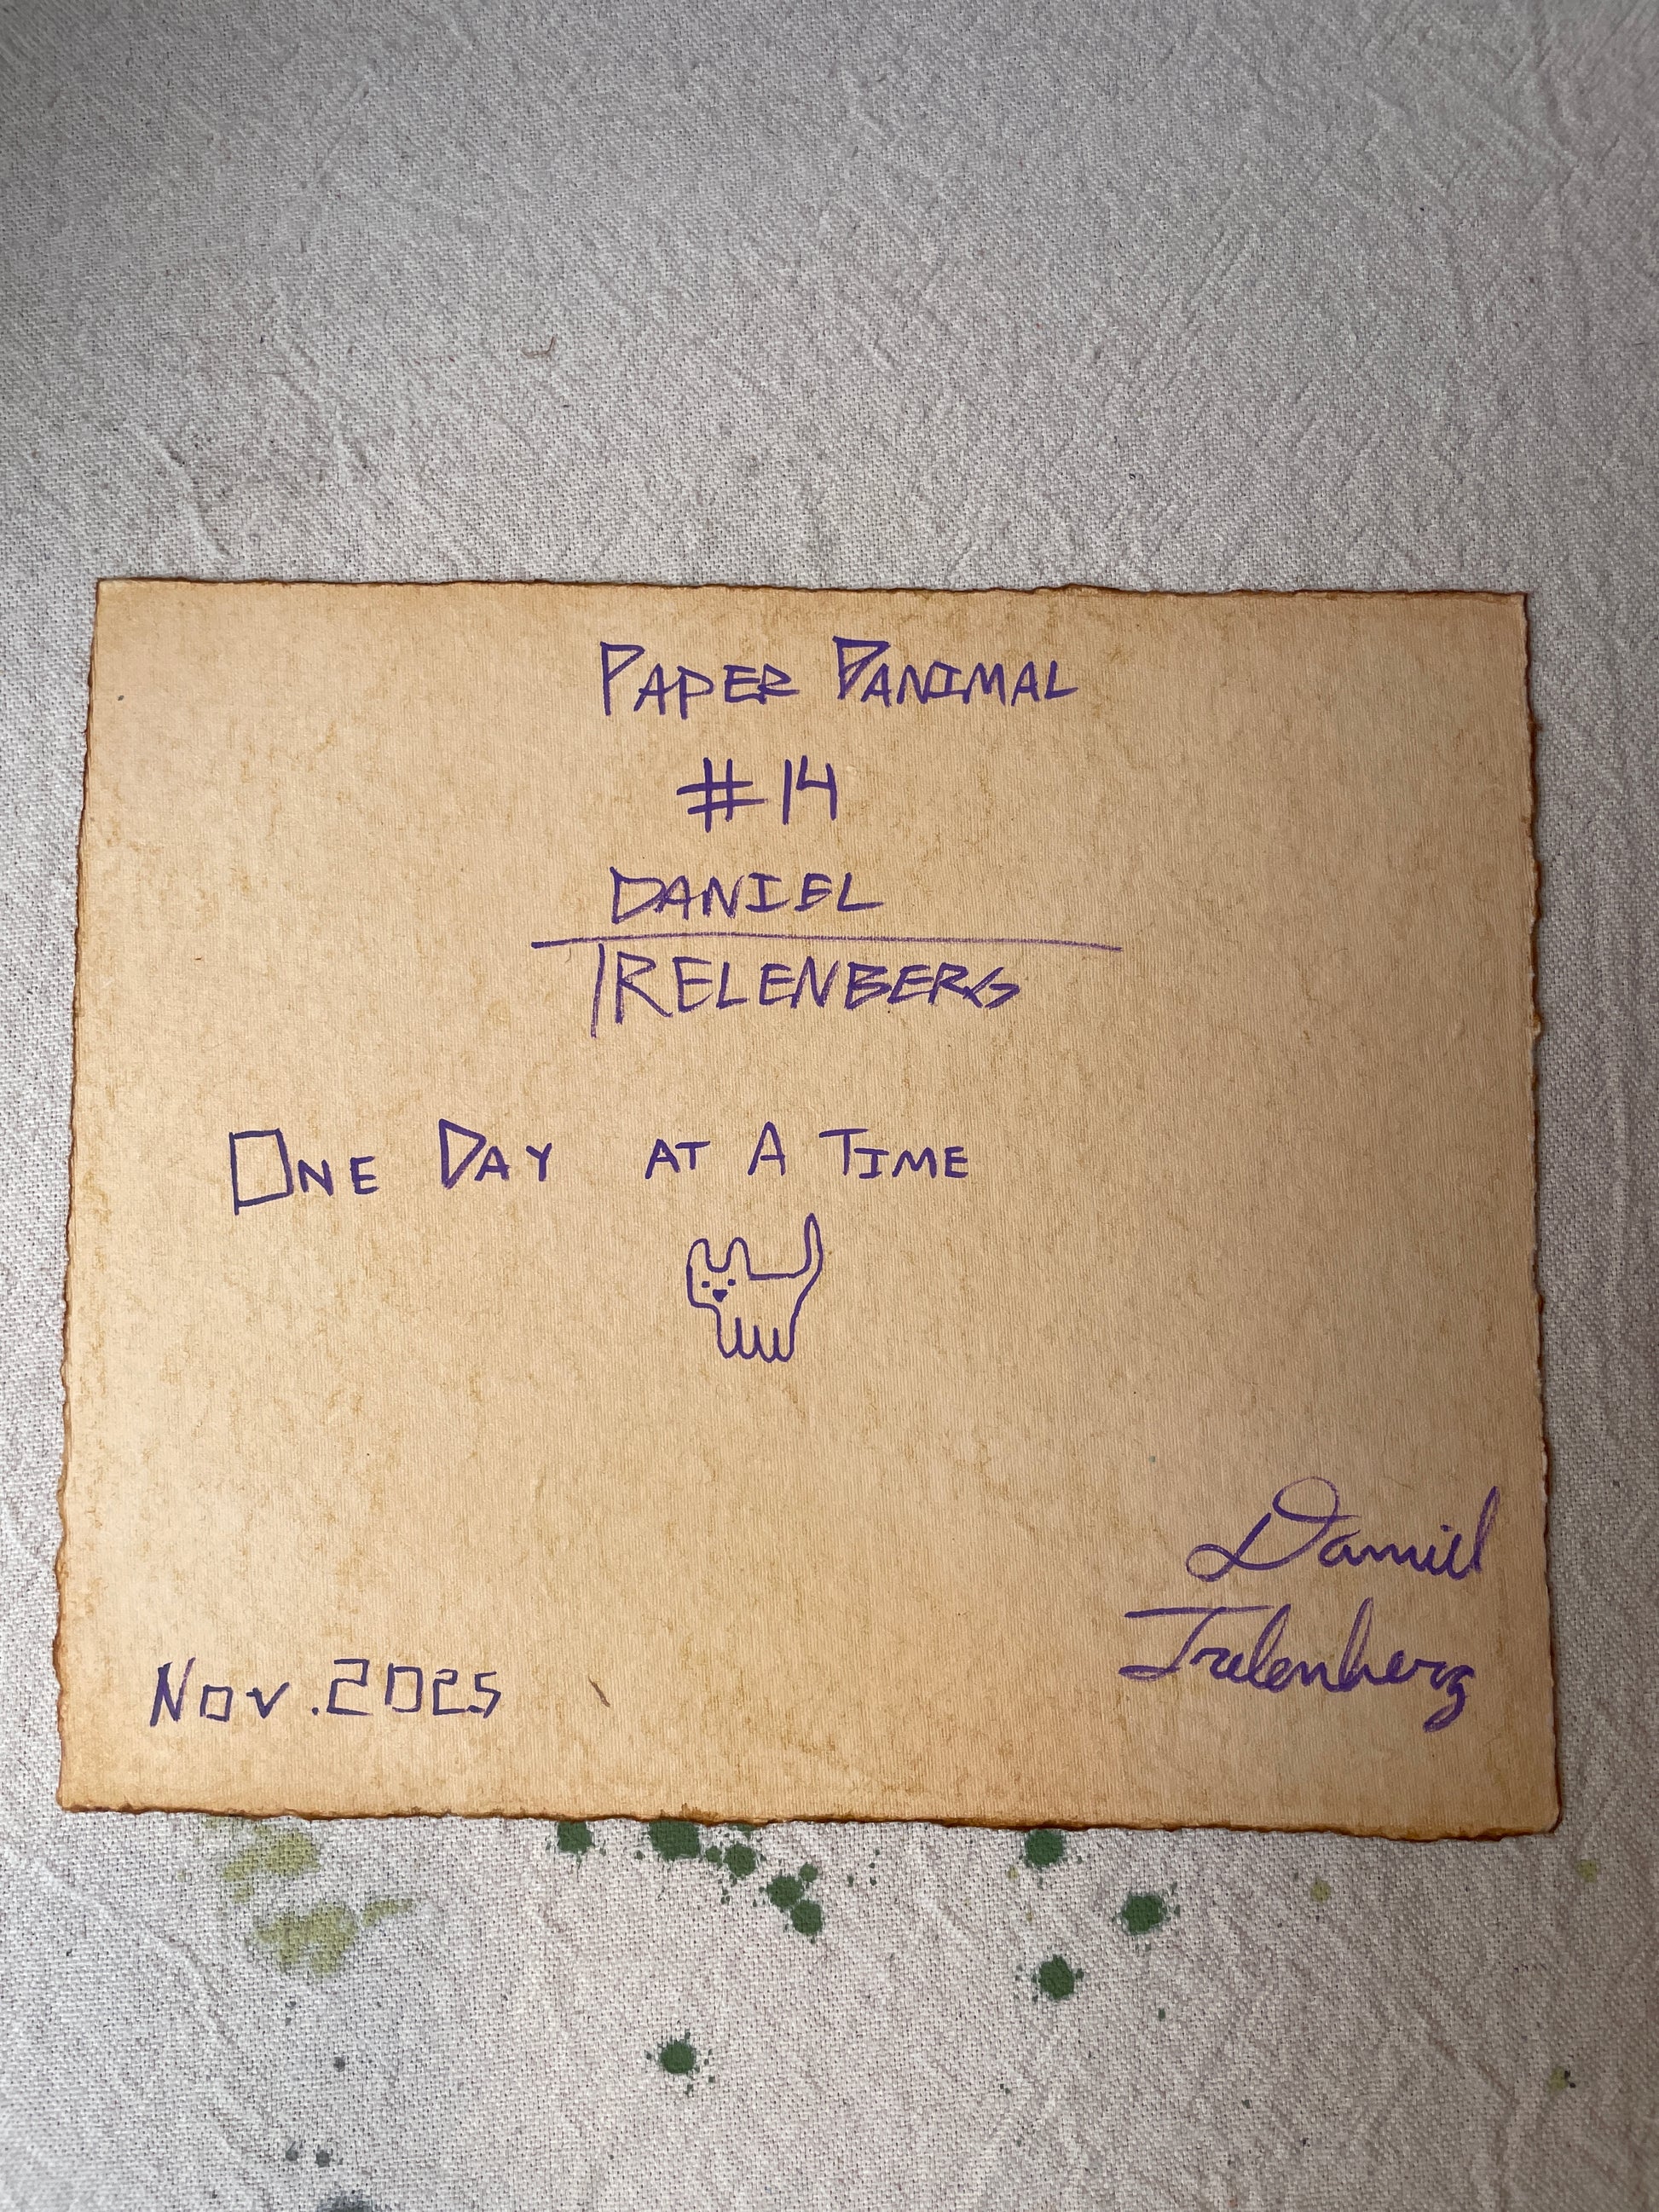 PAPER DANIMAL
#14
DANIEL
TRELENBERG
ONE DAY AT A TIME
Nov. 2025
Daniel
Trelenberg